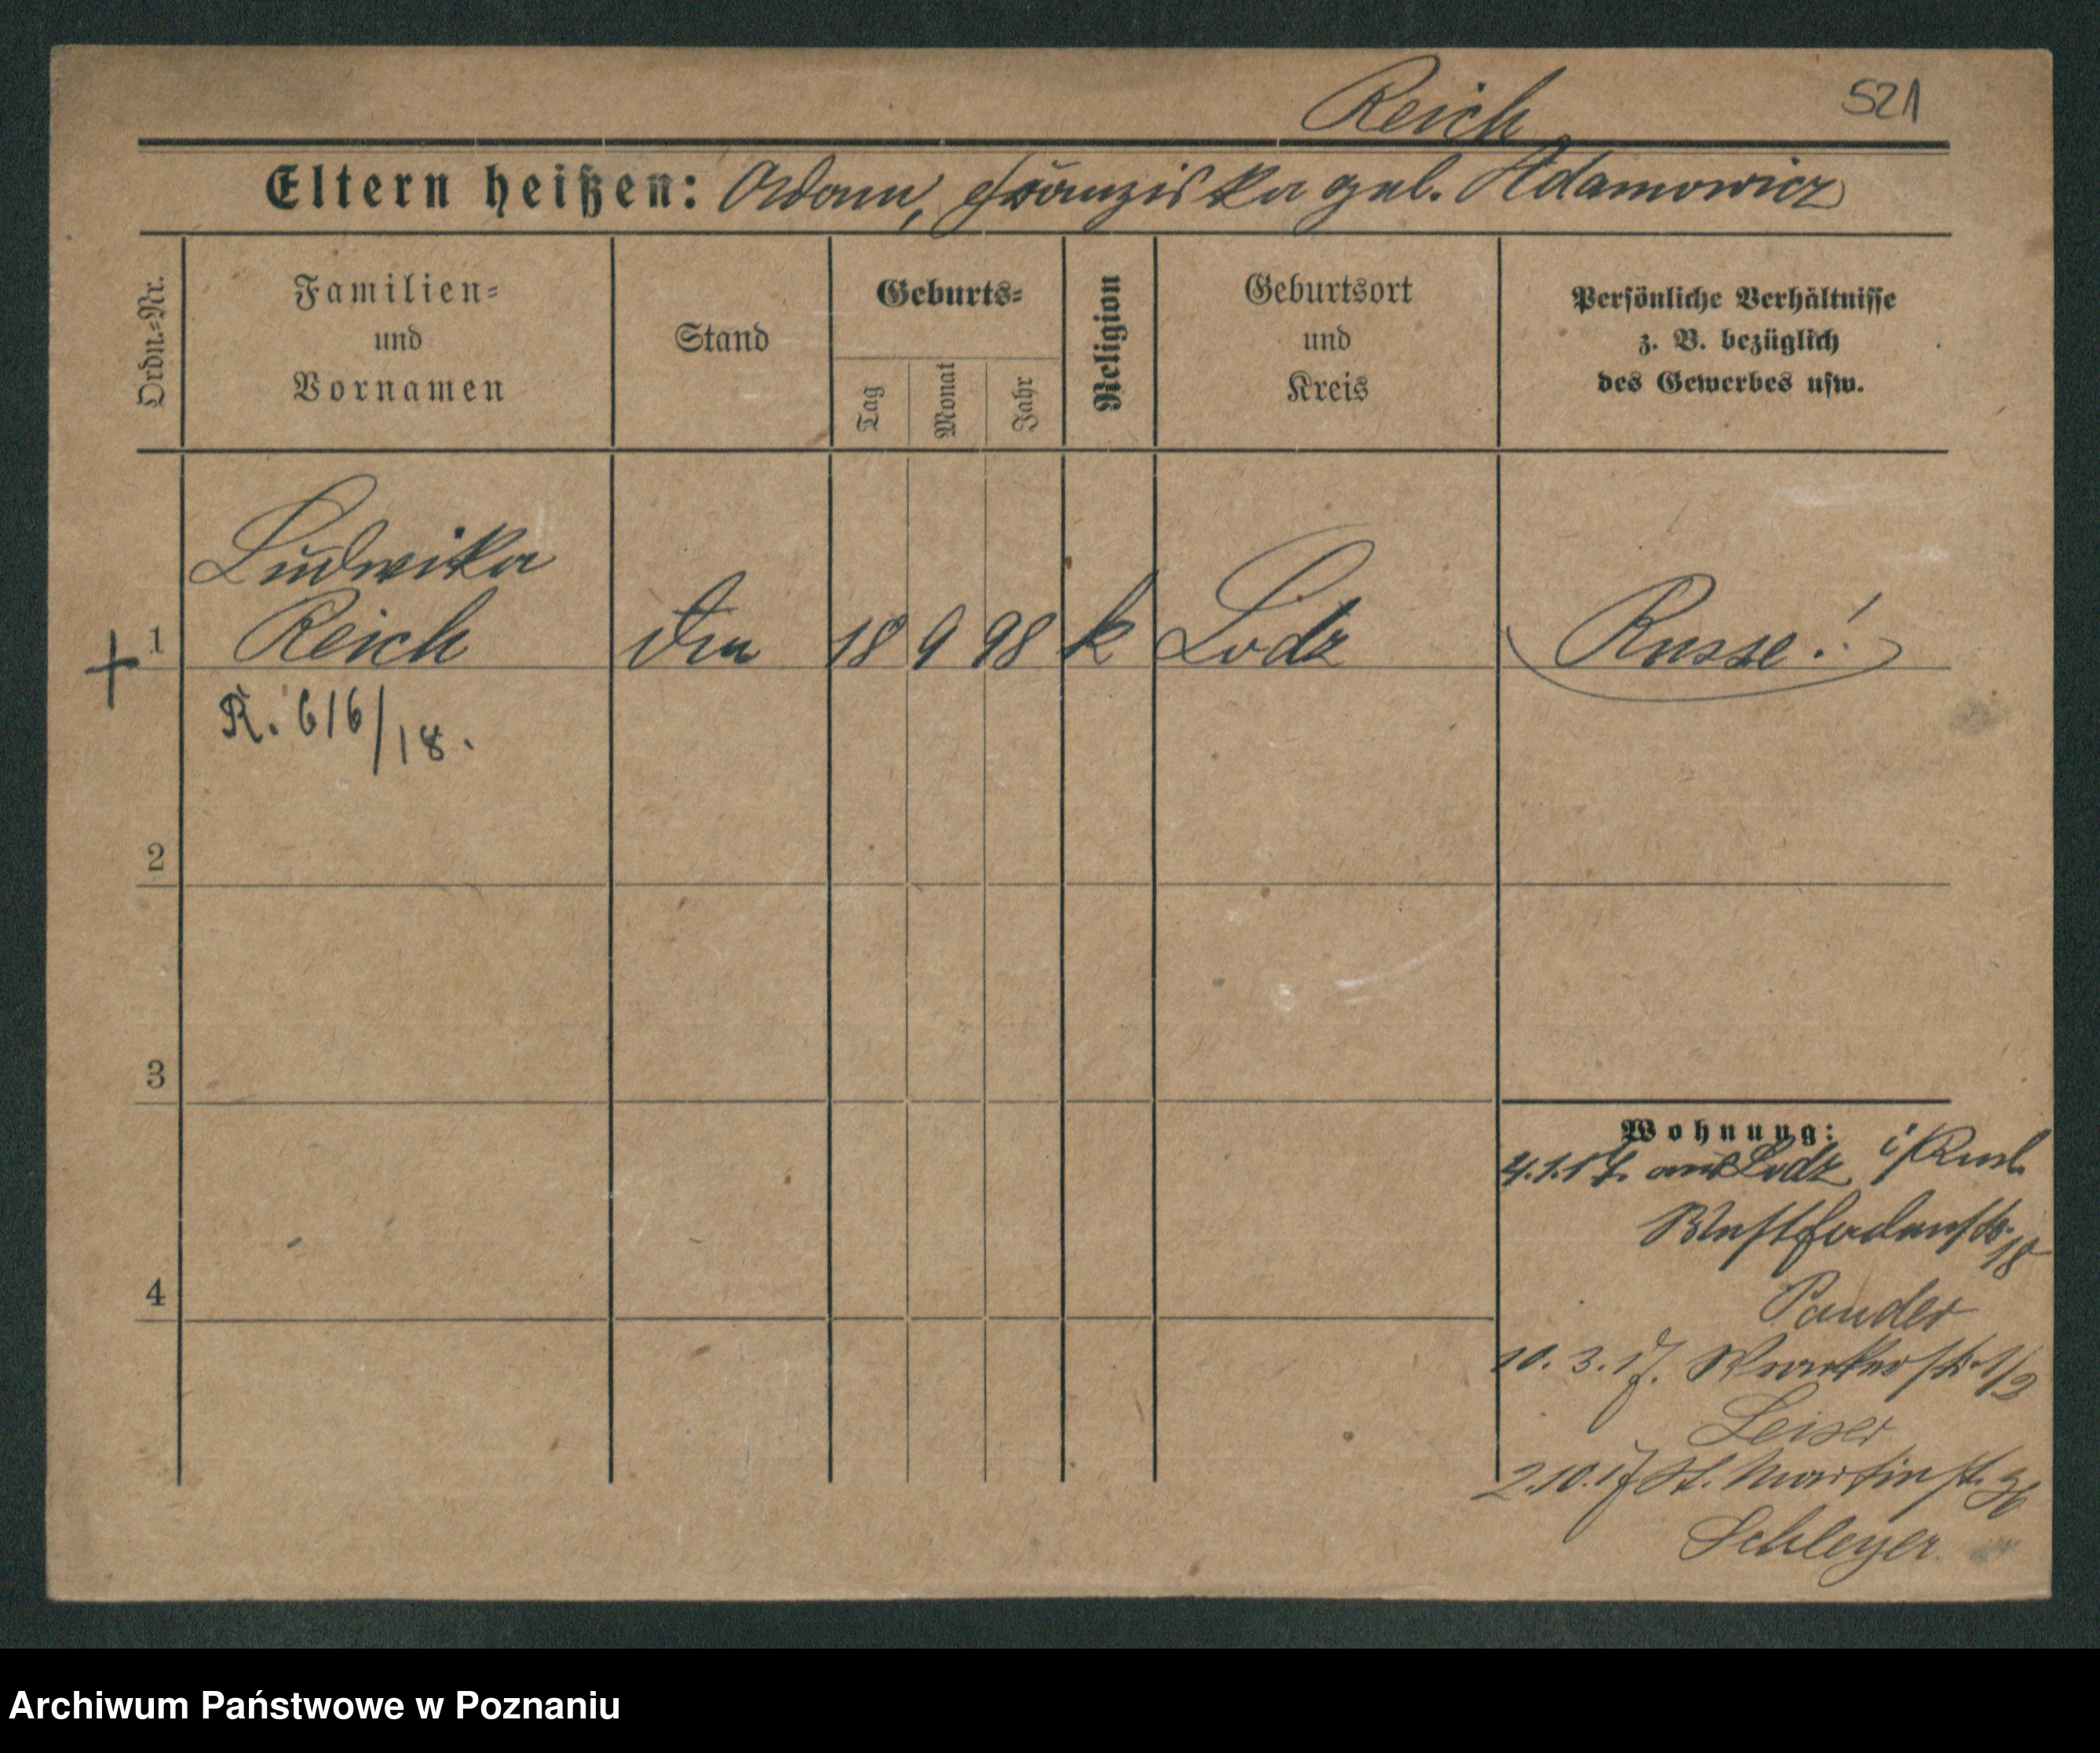 Reich 521
Eltern heißen: Adam, Franziska geb. Adamowicz
Ordn.=Nr.
Familien=
und
Vornamen
Stand
Geburts=
Tag
Monat
Jahr
Religion
Geburtsort
und
Kreis
Persönliche Verhältnisse
z. B. bezüglich
des Gewerbes usw.
Ludwika
+ 1 Reich 18 9 98 k Lodz Russe!
R. 616/18.
2
3
4
Wohnung:
4.1.17. aus Lodz i/Rusl.
18
Pander
10. 3. 17.
Leiser
2.10.17 St. Martinstr. 36
Schleyer